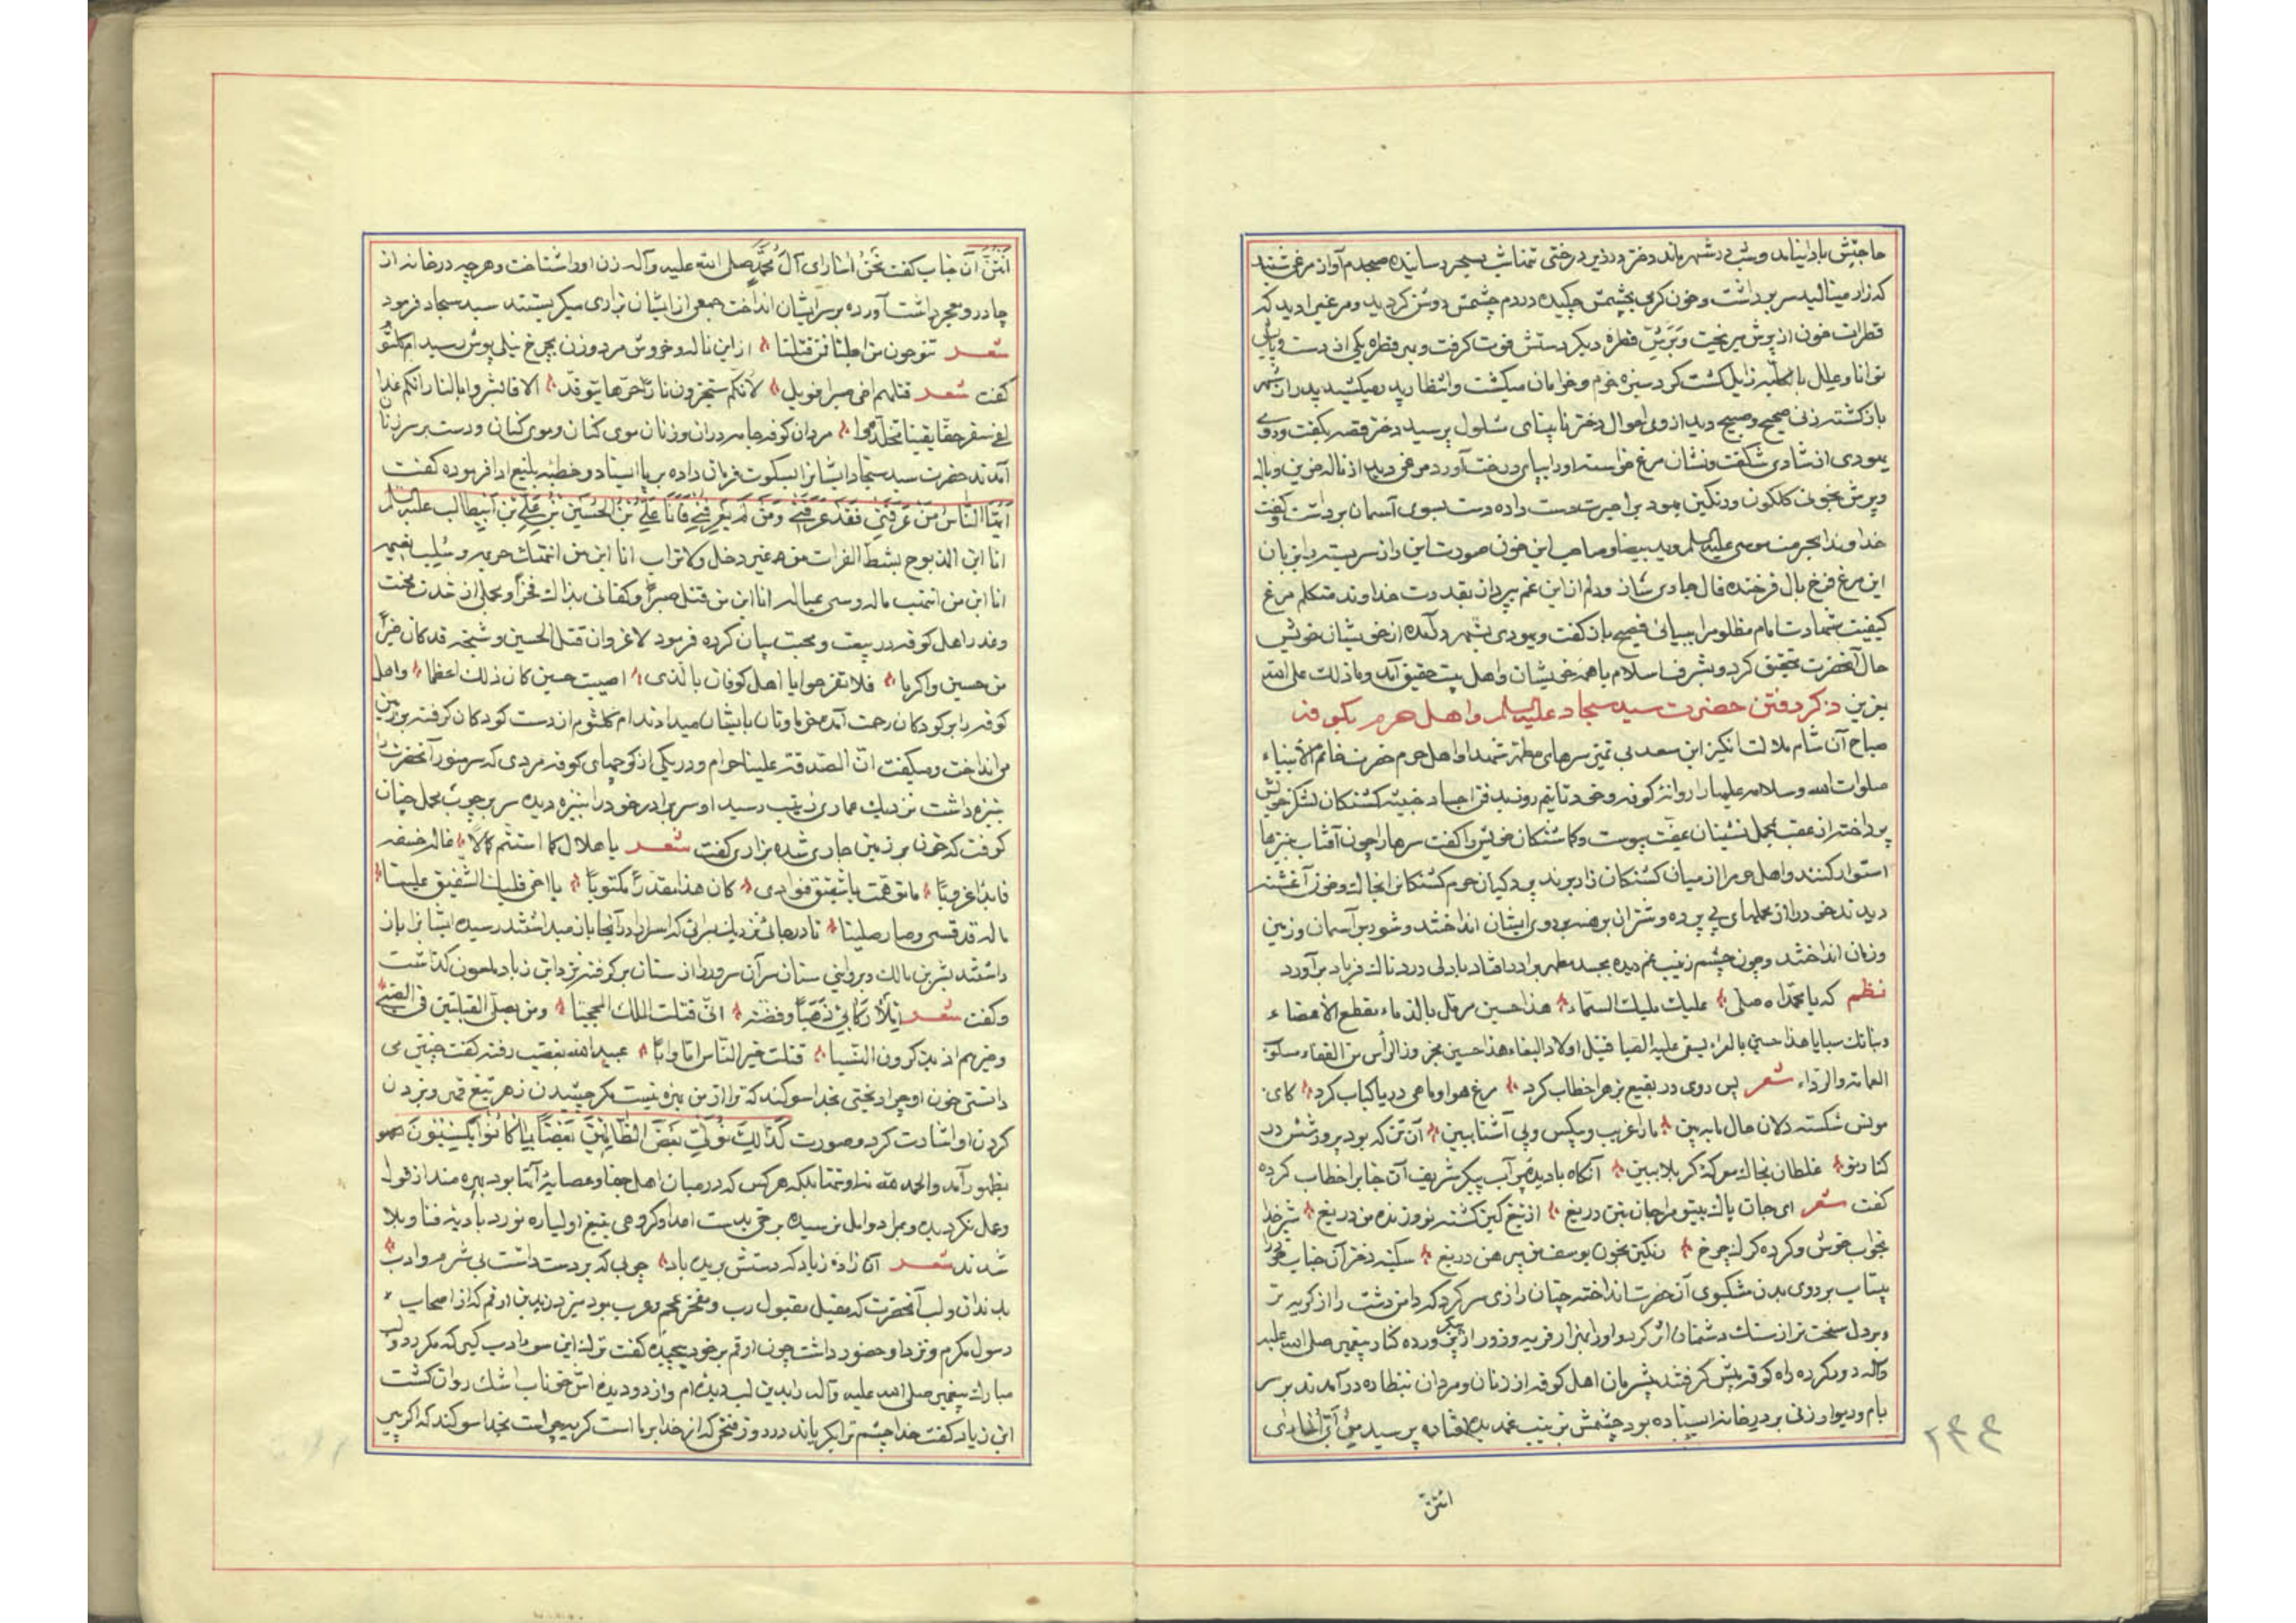 حاجتش باز نیامد و شب در شهر ماند دختر در زیر درختی تنها شب بسحر رسانیده صبحدم آواز مرغی شنید
که زار مینالید سر برداشت و خون گرمی بچشمش چکیده در دم چشمش روشن گردید و مرغی را دید که
قطرات خون از پرش میریخت و قطره دیگر دستش قوت گرفت و بهر قطره یکی از دست و پایش
توانا و علل بالکلیه زایل گشت گرد سبزه خرم و خرامان میگشت و انتظار پدر میکشید پدر از شهر
باز گشته زنی صحیح و صبیح دید از وی احوال دختر نابینای شلول پرسید دختر قصه بگفت و روی
یهودی از شادی شگفت و نشان مرغ خواسته او را بپای درخت آورد مرغی دید از ناله حزین و باله
و پرش بخونی گلگون و رنگین یهود را حیرت دست داده دست بسوی آسمان برداشت و گفت
خداوندا بحرمت موسی علیه السلم و ید بیضا و صاحب این خون صورت این راز سربسته را
این مرغ فرخ بال فرخنده فال جاری ساز و دلم از این غم بپرداز بقدرت خداوند متکلم مرغ
کیفیت شهادت امام مظلوم را ببیانی فصیح باز گفت و یهودی بشهر در آمده از خویشان خویش
حال آنحضرت تحقیق کرد و بشرف اسلام با همه خویشان و اهل بیت حقیق آمد و ما ذلک علی الله
بعزیز ذکر رفتن حضرت سید سجاد علیه السلم و اهل حرم بکوفه
صباح آن شام ملالت انگیز ابن سعد بی تمیز سرهای مطهر شهدا و اهل حرم حضرت خاتم الأنبیاء
صلوات الله و سلامه علیها را روانه کوفه و خود تا نیم روز بدفن اجساد خبیثه کشتگان لشکر خویش
پرداخته از عقب محمل نشینان عفت پیوست و گماشتگان خویش را گفت سرها را چون آفتاب بنیزها
استوار کنند و اهل حرم را از میان کشتگان گذار برند پردگیان حرم کشتگان را بخاک و خون آغشته
دیدند خود را از محملهای بی پرده و شتران برهنه بر روی ایشان انداختند و شور در آسمان و زمین
و زمان انداختند و چون چشم زینب غم دیده بجسد مطهر برادر افتاد با دلی دردناک فریاد برآورد
نظم که یا محمداه صلی علیک ملیک السماء هذا حسین مرمل بالدماء مقطع الأعضاء
و بناتک سبایا هذا حسین بالعراء یسفی علیه الصبا قتیل اولاد البغاء هذا حسین مجزوز الرأس من القفاء مسلوب
العمامة و الرداء شعر پس روی در بقیع بزهرا خطاب کرد مرغ هوا و ماهی دریا کباب کرد کای
مونس شکسته دلان حال ما ببین ما را غریب و بیکس و بی آشنا ببین آن تن که بود پرورشش در
کنار تو غلطان بخاک معرکه کربلا ببین آنگاه با دیده پر آب پیکر شریف آن جناب را خطاب کرده
گفت شعر ای جان پاک بیتو مرا جان بتن دریغ از تیغ کین کشته تو و زنده من دریغ شیر خدا
بخواب خوش و کرده گرگ چرخ رنگین بخون یوسف من پیرهن دریغ سکینه دختر آن جناب خود را
بیتاب بر روی بدن مشکبوی آن حضرت انداخته چنان زاری سر کرد که دامن دشت را از گریه تر
و بر دل سخت تر از سنگ دشمنان اثر کرد و او را بهزار فریب و زور از پیکر ورده کنار پیغمبر صلی الله علیه
و آله دور کرده راه کوفه پیش گرفتند بیشرمان اهل کوفه از زنان و مردان بنظاره درآمدند بر سر
بام و دیوار زنی بر در خانه ایستاده بود چشمش بزینب غمدیده افتاده پرسید من أی الأساری
انتن
۲۴۴
انتن آن جناب گفت نحن اسارای آل محمد صلی الله علیه و آله زن او را شناخت و هر چه در خانه از
چادر و معجر داشت آورده بر سر ایشان انداخت جمعی از ایشان بزاری میگریستند سید سجاد فرمود
شعر تنوحون من اجلنا فمن قتلنا از این ناله و خروش مرد و زن بچرخ نیلی پوش رسید ام کلثوم
گفت شعر قتلتم اخی صبرا فویل لأنکم ستجزون نارا حرها یتوقد الا فابشروا بالنار انکم غدا
لفی سقر حقا یقینا تخلدوا مردان کوفه جامه دران و زنان موی کنان و موی کنان و دست بر سر زنان
آمدند حضرت سید سجاد ایشان را بسکوت فرمان داده بر پا ایستاد و خطبه بلیغ ادا فرموده گفت
ایها الناس من عرفنی فقد عرفنی و من لم یعرفنی فأنا علی بن الحسین بن علی بن ابیطالب علیه السلم
انا ابن المذبوح بشط الفرات من غیر دخل و لا تراب انا ابن من انتهک حریمه و سلب نعیمه
انا ابن من انتهب ماله و سبی عیاله انا ابن من قتل صبرا و کفانی بذالک فخرا و مجملی از خدمت
و غدر اهل کوفه در بیعت و محبت بیان کرده فرمود لا غرو ان قتل الحسین و شیخه قد کان خیرا
من حسین و اکرما فلا تفرحوا یا اهل کوفان بالذی اصیب حسین کان ذلک اعظما و اهل
کوفه را بر کودکان رحمت آمده خرما و نان بایشان میدادند ام کلثوم از دست کودکان گرفته بر زمین
می انداخت و میگفت ان الصدقة علینا حرام و در یکی از کوچهای کوفه مردی که سر منور آنحضرت را
بنیزه داشت نزدیک عماری زینب رسید او سر برادر خود را بنیزه دیده سر بر چوب محمل چنان
کوفت که خون بر زمین جاری شده بزاری گفت شعر یا هلالا لما استتم کمالا غاله خسفه
فأبدا غروبا ما توهمت یا شقیق فؤادی کان هذا مقدرا مکتوبا یا اخی قلبک الشفیق علینا
ماله قد قسی و صار صلیبا تا در جائی نزدیک سرائی که اسرا را در آنجا باز میداشتند رسیده ایشان را باز
داشتند بشر بن مالک و بروایتی سنان سر آن سرور را از سنان بر گرفته نزد ابن زیاد ملعون گذاشت
و گفت شعر املأ رکابی ذهبا و فضة انی قتلت الملک المحجبا و من یصلی القبلتین فی الصبی
و خیرهم اذ یذکرون النسبا قتلت خیر الناس اما و ابا عبید الله بغضب رفته گفت چنین می
دانستی خون او چرا ریختی بخدا سوگند که ترا از من بهره نیست مگر چشیدن زهر تیغ قهر و بزدن
گردن او اشارت کرد و صورت کذالک نولی بعض الظالمین بعضا بما کانوا یکسبون
بظهور آمد و الحمد لله نه او تنها بلکه هر کس که در میان اهل جفا و عصابه آشنا بود بهره مند از قول
و عمل نگردیده و بمراد و امل نرسیده برخی بدست اعدا و گروهی بتیغ اولیا ره نورد بادیه فنا و بلا
شدند شعر آنگاه زاده زیاد که دستش بریده باد چوبی که بر دست داشت بی شرم و ادب
بدندان و لب آنحضرت که مقبل مقبول رب و مفخر عجم و عرب بود میزد زید بن ارقم که از اصحاب
رسول مکرم و نزد او حضور داشت چون ارقم بر خود پیچیده گفت ترک این سوء ادب کن که مکرر دو لب
مبارک پیغمبر صلی الله علیه و آله را بدین لب دیده ام و از دو دیده اش خوناب اشک روان گشت
ابن زیاد گفت خدا چشم ترا بگریاند در روز فتحی که از خدا بر ما است گریه چراست بخدا سوگند که اگر پیر